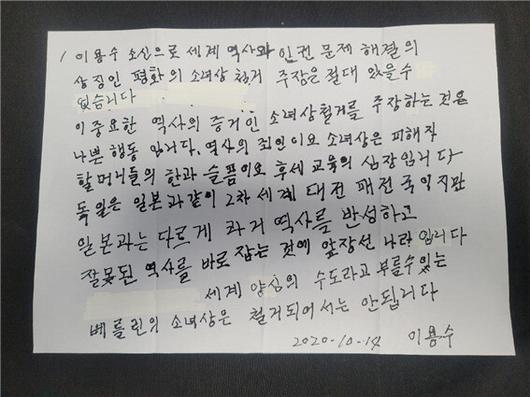 이용수 소신으로 세계 역사와 인권 문제 해결의
상징인 평화의 소녀상 철거 주장은 절대 있을수
없습니다
이중요한 역사의 증거인 소녀상철거를 주장하는 것은
나쁜 행동 입니다. 역사의 죄인이요 소녀상은 피해자
할머니들의 한과 슬픔이요 후세 교육의 심장입니다
독일은 일본과같이 2차 세계 대전 패전 국이지만
일본과는 다르게 과거 역사를 반성하고
잘못된 역사를 바로 잡는 것에 앞장선 나라 입니다
세계 양심의 수도라고 부를수있는
베를린의 소녀상은 철거되어서는 안됩니다
2020-10-14 이용수